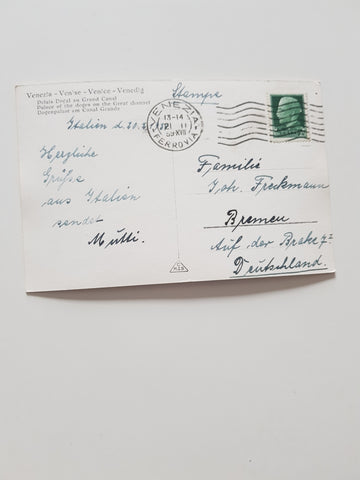 Venezia - Venise - Venice - Venedig
Palais Doçal au Grand Canal
Palace of the doges on the Great channel
Dogenpalast am Canal Grande
Stampe
VENEZIA
13-14
FERROVIA
Italien d.
Herzliche
Grüße
aus Italien
sendet
Mutti.
Familie
Joh. Freckmann
Bremen
Auf der Brake
Deutschland.